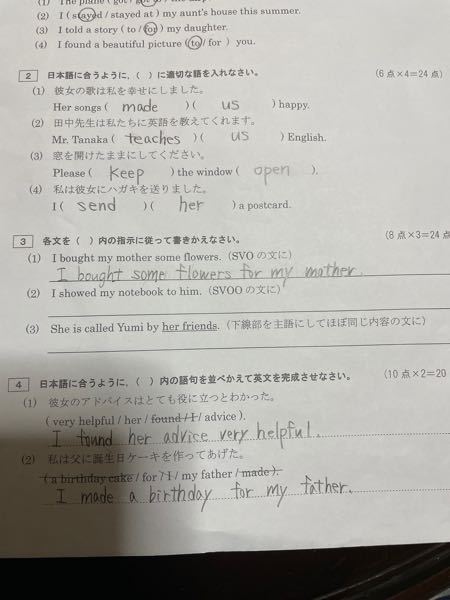 (1) The plane ( got
(2) I ( stayed / stayed at ) my aunt's house this summer.
(3) I told a story ( to / for ) my daughter.
(4) I found a beautiful picture ( to / for ) you.
2 日本語に合うように,( )に適切な語を入れなさい。 (6点×4=24点)
(1) 彼女の歌は私を幸せにしました。
Her songs ( made )( us ) happy.
(2) 田中先生は私たちに英語を教えてくれます。
Mr. Tanaka ( teaches )( us ) English.
(3) 窓を開けたままにしてください。
Please ( keep ) the window ( open ).
(4) 私は彼女にハガキを送りました。
I ( send )( her ) a postcard.
3 各文を( )内の指示に従って書きかえなさい。 (8点×3=24点
(1) I bought my mother some flowers.(SVOの文に)
I bought some flowers for my mother.
(2) I showed my notebook to him.(SVOOの文に)
(3) She is called Yumi by her friends.(下線部を主語にしてほぼ同じ内容の文に)
4 日本語に合うように,( )内の語句を並べかえて英文を完成させなさい。 (10点×2=20
(1) 彼女のアドバイスはとても役に立つとわかった。
( very helpful / her / found / I / advice ).
I found her advice very helpful.
(2) 私は父に誕生日ケーキを作ってあげた。
( a birthday cake / for / I / my father / made ).
I made a birthday for my father.